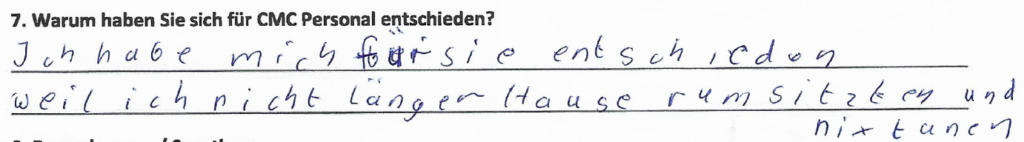 7. Warum haben Sie sich für CMC Personal entschieden?
Ich habe mich für sie entschieden
weil ich nicht länger Hause rum sitzten und
nix tunen